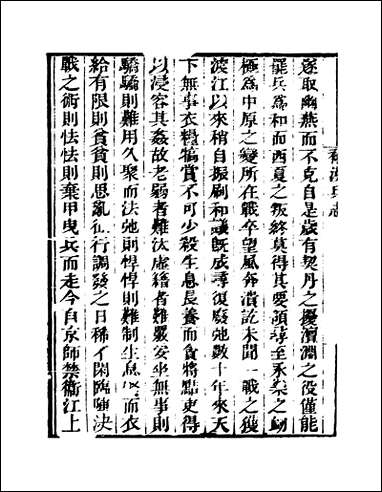 補漢兵志
遂取幽燕而不克自是歲有契丹之擾澶淵之役僅能
罷兵爲和而西夏之叛終莫得其要領至之
極爲中原之變所在戰卒望風奔潰訖未聞一戰之獲
渡江以來稍自振刷和議既成尋復廢弛數十年來天
下無事衣糧犒賞不可少殺生息長養而貪將點吏得
以浸容其姦故老弱者難汰虛籍者難嚴安坐無事則
驕驕則難用久聚而法弛則悍悍則難制生息而衣
給有限則貧貧則思亂征行調發之日稀閑臨陣決
戰之術則怯怯則棄甲曳兵而走今自京師禁衞江上